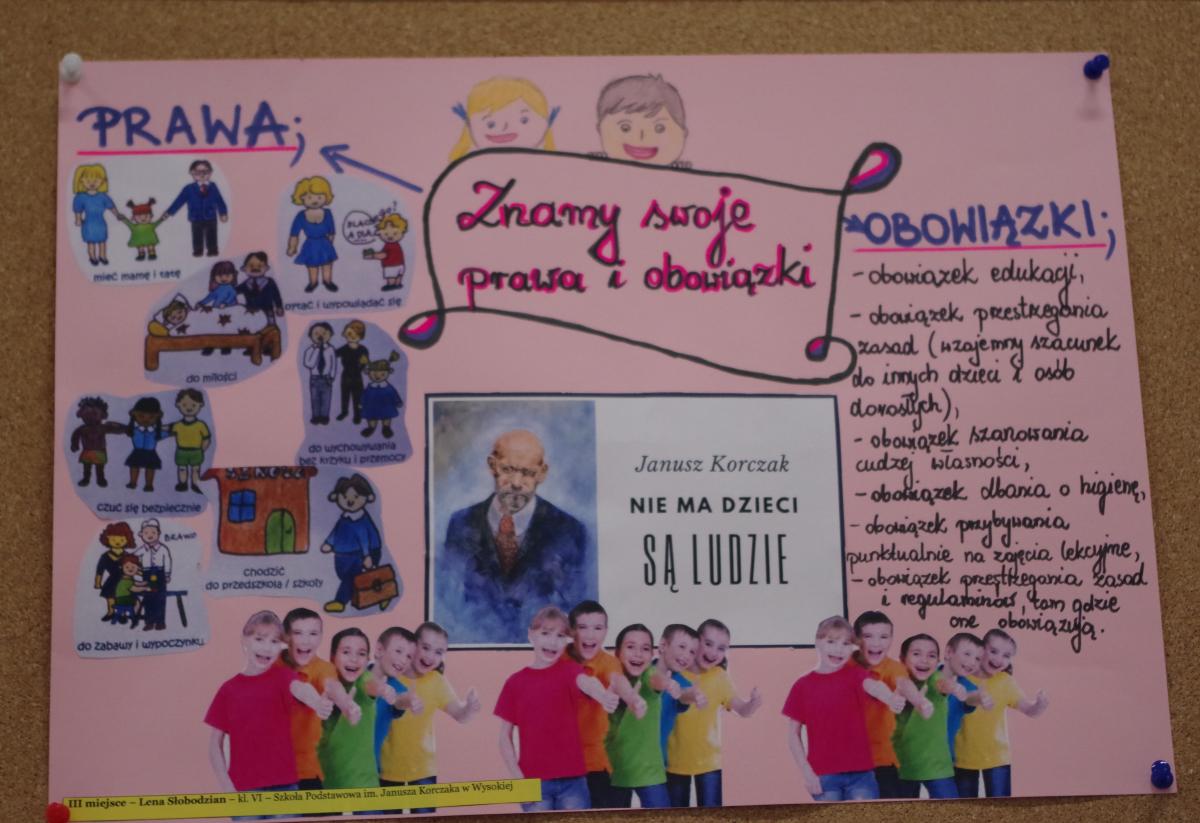 PRAWA;
mieć mamę i tatę
DLACZEGO?
pytać i wypowiadać się
do miłości
do wychowywania
bez krzyku i przemocy
czuć się bezpiecznie
chodzić
do przedszkola / szkoły
BRAWO
do zabawy i wypoczynku
Znamy swoje
prawa i obowiązki
Janusz Korczak
NIE MA DZIECI
SĄ LUDZIE
OBOWIĄZKI;
- obowiązek edukacji,
- obowiązek przestrzegania
zasad (wzajemny szacunek
do innych dzieci i osób
dorosłych),
- obowiązek szanowania
cudzej własności,
- obowiązek dbania o higienę,
- obowiązek przybywania
punktualnie na zajęcia lekcyjne,
- obowiązek przestrzegania zasad
i regulaminów, tam gdzie
one obowiązują.
III miejsce – Lena Słobodzian – kl. VI – Szkoła Podstawowa im. Janusza Korczaka w Wysokiej